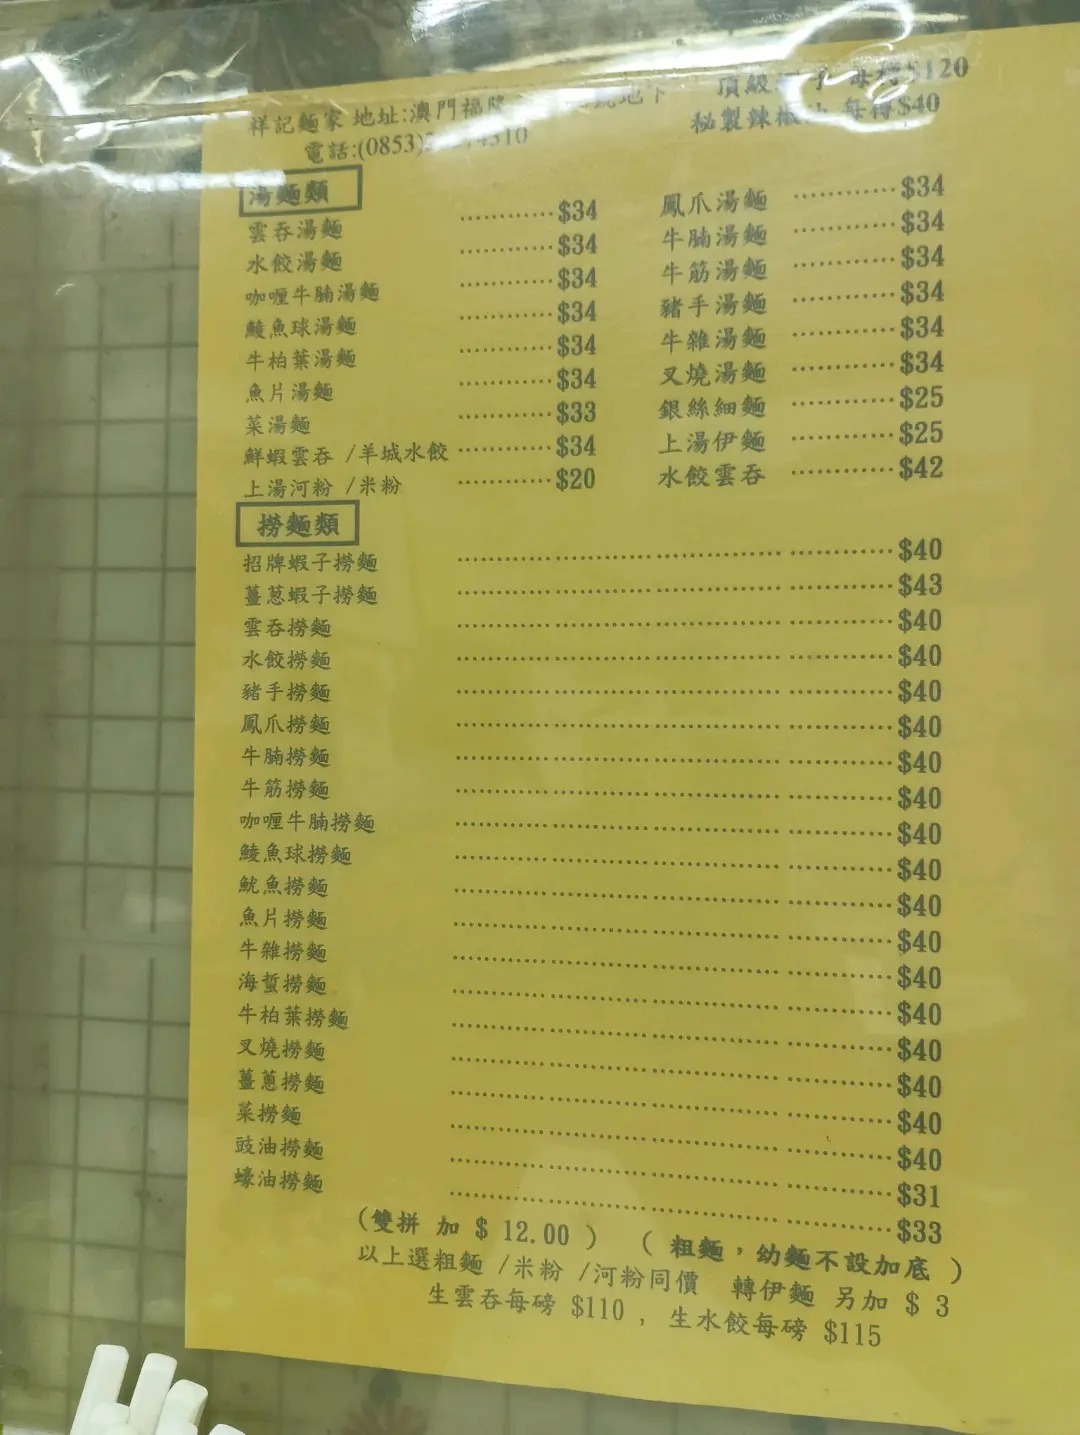 祥記麵家 地址:澳門福隆 地下 頂級 子 每樽$120
電話:(0853) 秘製辣椒油 每樽$40
湯麵類
雲吞湯麵 ············$34 鳳爪湯麵 ············$34
水餃湯麵 ············$34 牛腩湯麵 ············$34
咖喱牛腩湯麵 ············$34 牛筋湯麵 ············$34
鯪魚球湯麵 ············$34 豬手湯麵 ············$34
牛柏葉湯麵 ············$34 牛雜湯麵 ············$34
魚片湯麵 ············$34 叉燒湯麵 ············$34
菜湯麵 ············$33 銀絲細麵 ············$25
鮮蝦雲吞 /羊城水餃 ············$34 上湯伊麵 ············$25
上湯河粉 /米粉 ············$20 水餃雲吞 ············$42
撈麵類
招牌蝦子撈麵 ············$40
薑葱蝦子撈麵 ············$43
雲吞撈麵 ············$40
水餃撈麵 ············$40
豬手撈麵 ············$40
鳳爪撈麵 ············$40
牛腩撈麵 ············$40
牛筋撈麵 ············$40
咖喱牛腩撈麵 ············$40
鯪魚球撈麵 ············$40
魷魚撈麵 ············$40
魚片撈麵 ············$40
牛雜撈麵 ············$40
海蜇撈麵 ············$40
牛柏葉撈麵 ············$40
叉燒撈麵 ············$40
薑蔥撈麵 ············$40
菜撈麵 ············$40
豉油撈麵 ············$31
蠔油撈麵 ············$33
(雙拼 加 $ 12.00 ) ( 粗麵，幼麵不設加底 )
以上選粗麵 /米粉 /河粉同價 轉伊麵 另加 $ 3
生雲吞每磅 $110 , 生水餃每磅 $115